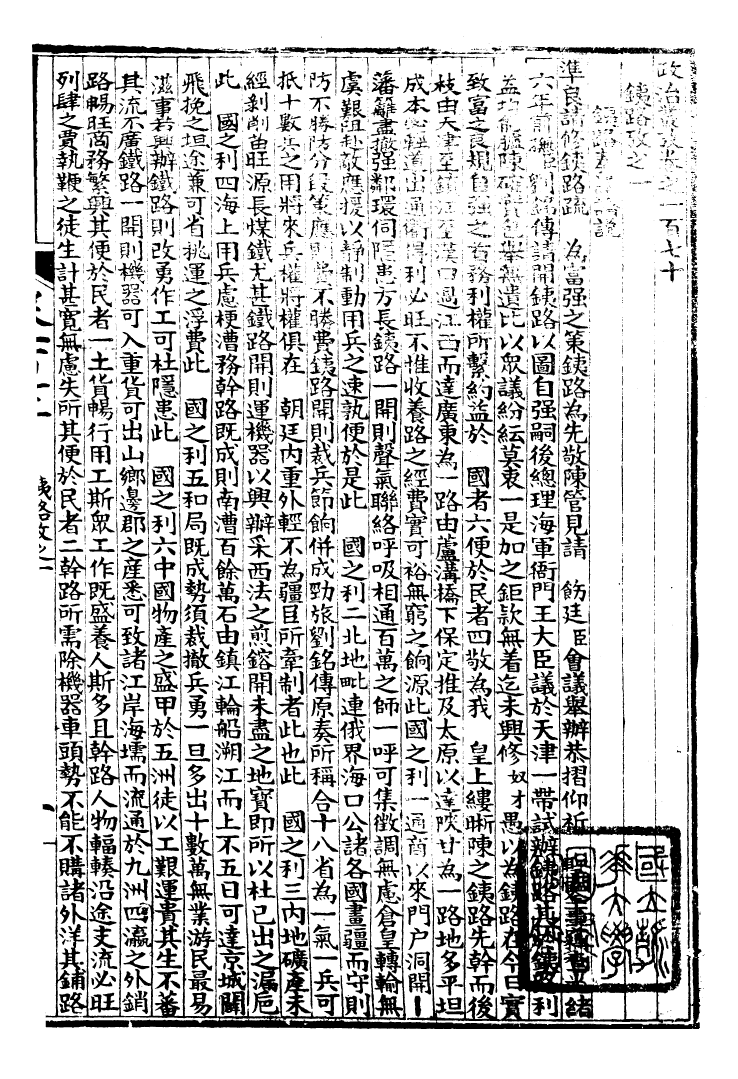 政治叢攷卷之一百七十
鐵路攷之一
準良請修鐵路疏　為富强之策鐵路為先敬陳管見請　飭廷臣會議舉辦恭摺仰祈
六年前撫臣劉銘傳請開鐵路以圖自强嗣後總理海軍衙門王大臣議於天津一帶試辦鐵路其於鐵路利
益均能臚陳確實包舉無遺比以眾議紛紜莫衷一是加之鉅款無着迄未興修奴才愚以為鐵路在今日實
致富之良規自强之首務利權所繫約益於　國者六便於民者四敬為我　皇上縷晰陳之鐵路先幹而後
枝由天津至鎮江至漢口過江西而達廣東為一路由蘆溝橋下保定推及太原以達陝甘為一路地多平坦
成本必輕道出通衢得利必旺不惟收養路之經費實可裕無窮之餉源此國之利一通商以來門户洞開
藩籬盡撤强鄰環伺隱患方長鐵路一開則聲氣聯絡呼吸相通百萬之師一呼可集徵調無慮倉皇轉輸無
虞艱阻赴敵應援以靜制動用兵之速孰便於是此　國之利二北地毗連俄界海口公諸各國畫疆而守則
防不勝防分段策應則費不勝費鐵路開則裁兵節餉併成勁旅劉銘傳原奏所稱合十八省為一氣一兵可
抵十數兵之用將來兵權將權俱在　朝廷內重外輕不為疆臣所牽制者此也此　國之利三內地礦產未
經剝削苗旺源長煤鐵尤甚鐵路開則運機器以興辦采西法之煎鎔開未盡之地寶即所以杜已出之漏巵
此　國之利四海上用兵慮梗漕務幹路既成則南漕百餘萬石由鎮江輪船溯江而上不五日可達京城闢
飛挽之坦途兼可省挑運之浮費此　國之利五和局既成勢須裁撤兵勇一旦多出十數萬無業游民最易
滋事若興辦鐵路則改勇作工可杜隱患此　國之利六中國物產之盛甲於五洲徒以工艱運貴其生不蕃
其流不廣鐵路一開則機器可入重貨可出山鄉邊郡之產悉可致諸江岸海壖而流通於九洲四瀛之外銷
路暢旺商務繁興其便於民者一土貨暢行用工斯眾工作既盛養人斯多且幹路人物輻輳沿途支流必旺
列肆之賈執鞭之徒生計甚寬無慮失所其便於民者二幹路所需除機器車頭勢不能不購諸外洋其鋪路
鐵路攷之一